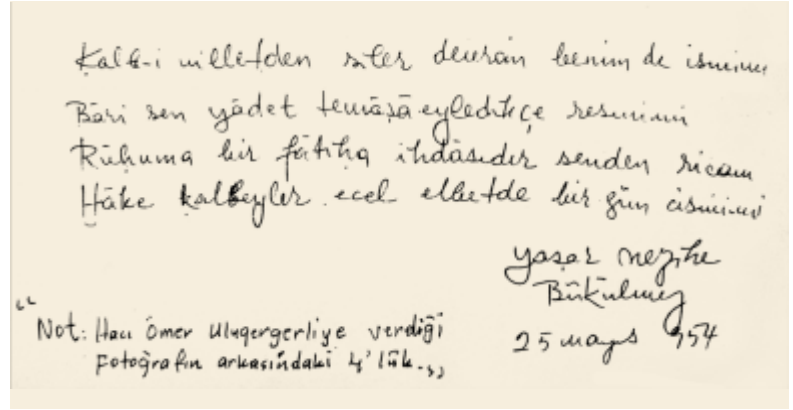 Ḳalb-i milletden siler devrân benim de ismimi
Bâri sen yâdet temâşâ eyledikçe resmimi
Rûḥuma bir fâtiḥa ihdâsıdır senden ricam
Ḫâke ḳalbeyler ecel elbetde bir gün cismimi
Yaşar Nezihe
Bükülmez
25 mayıs 954
"Not: Hacı Ömer Uluçergerliye verdiği
Fotoğrafın arkasındaki 4'lük.,,